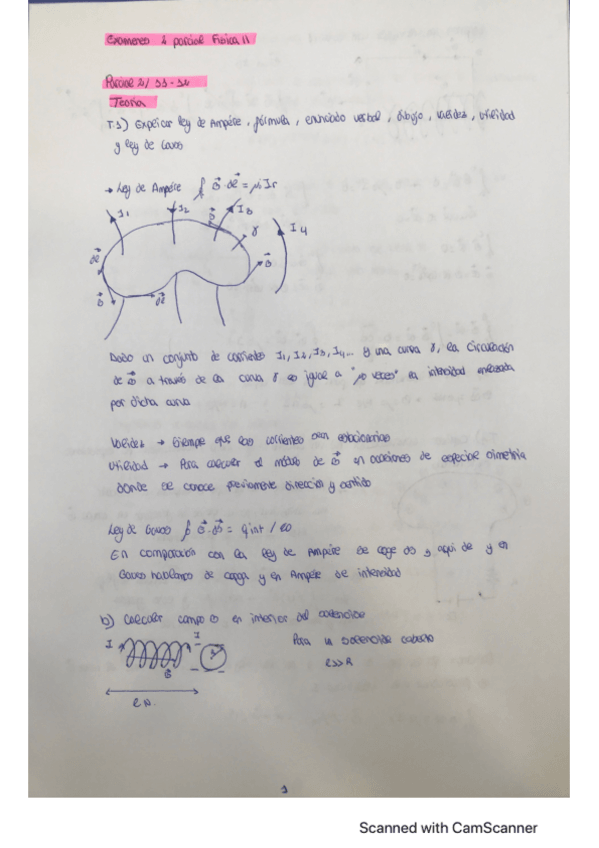 Examenes 1 parcial Física II
Parcial
Teoría
T.1) Explicar ley de Ampére, fórmula, enunciado verbal, dibujo, validez, utilidad
y ley de Gauss
→ Ley de Ampére ∮ B⃗ · dl⃗ = μ₀ I
I1 I2 I3 I4 γ
B⃗ dl⃗
Dado un conjunto de corrientes I1, I2, I3, I4... y una curva γ, la circulación
de B⃗ a través de la curva γ es igual a "μ₀ veces" la intensidad enlazada
por dicha curva
Validez → Siempre que las corrientes sean estacionarias
Utilidad → Para calcular el módulo de B⃗ en ocasiones de especial simetría
donde se conoce previamente dirección y sentido
Ley de Gauss ∮ E⃗ · dS⃗ = q int / ε0
En comparación con la ley de Ampére se coge y aquí y en
Gauss hablamos de carga y en Ampére de intensidad
b) Calcular campo B en interior del solenoide
I I Para un solenoide
B⃗ l>>R
l N.
1
Scanned with CamScanner